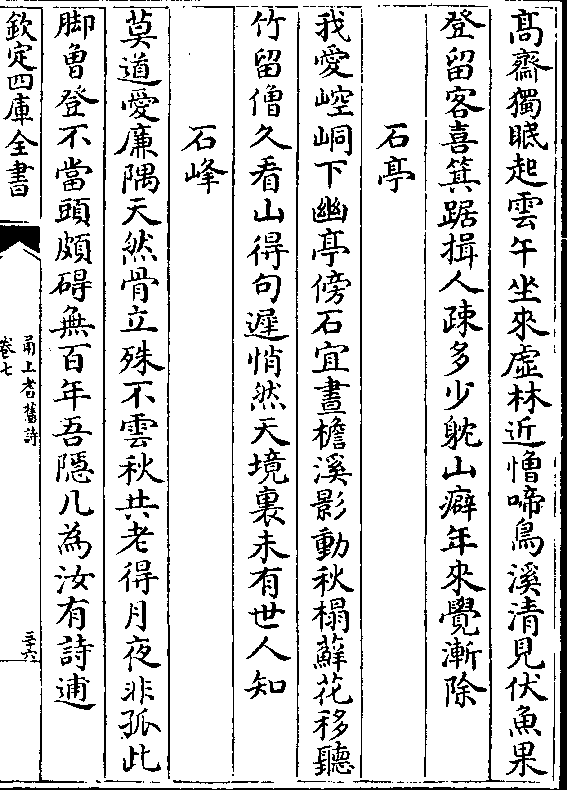 髙齋獨眠起雲午坐來虛林近憎啼鳥溪清見伏魚果
登留客喜箕踞揖人疎多少躭山癖年來覺漸除
石亭
我愛崆峒下幽亭傍石宜晝檐溪影動秋榻蘚花移聽
竹留僧久看山得句遲悄然天境裏未有世人知
石峰
莫道愛廉隅天然骨立殊不雲秋共老得月夜非孤此
脚曾登不當頭頗碍無百年吾隠几為汝有詩逋
欽定四庫全書
甬上耆舊詩
卷七
三六